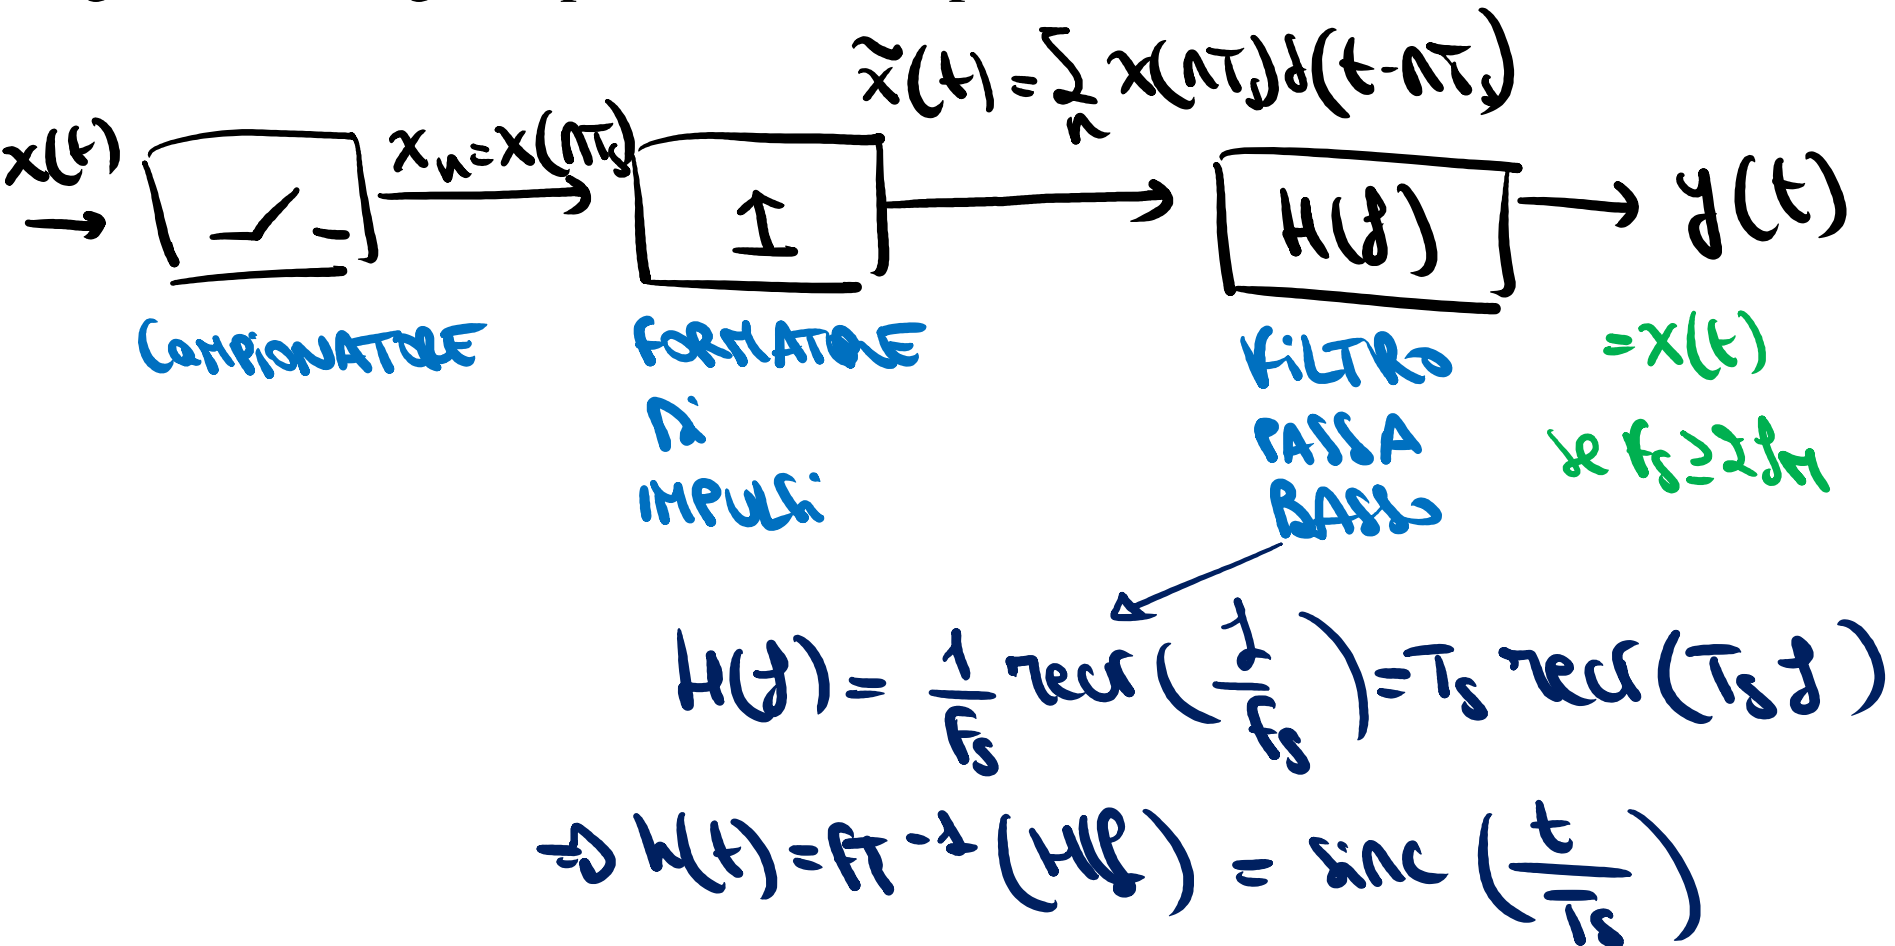 x̃(t) = ∑ₙ x(nTs)δ(t-nTs)
x(t)
xₙ=x(nTs)
H(f)
y(t)
CAMPIONATORE
FORMATORE
DI
IMPULSI
FILTRO
PASSA
BASSO
=x(t)
se Fs ≥ 2fM
H(f) = 1/Fs rect(f/Fs) = Ts rect(Ts f)
⇒ h(t) = FT⁻¹(H(f)) = sinc(t/Ts)